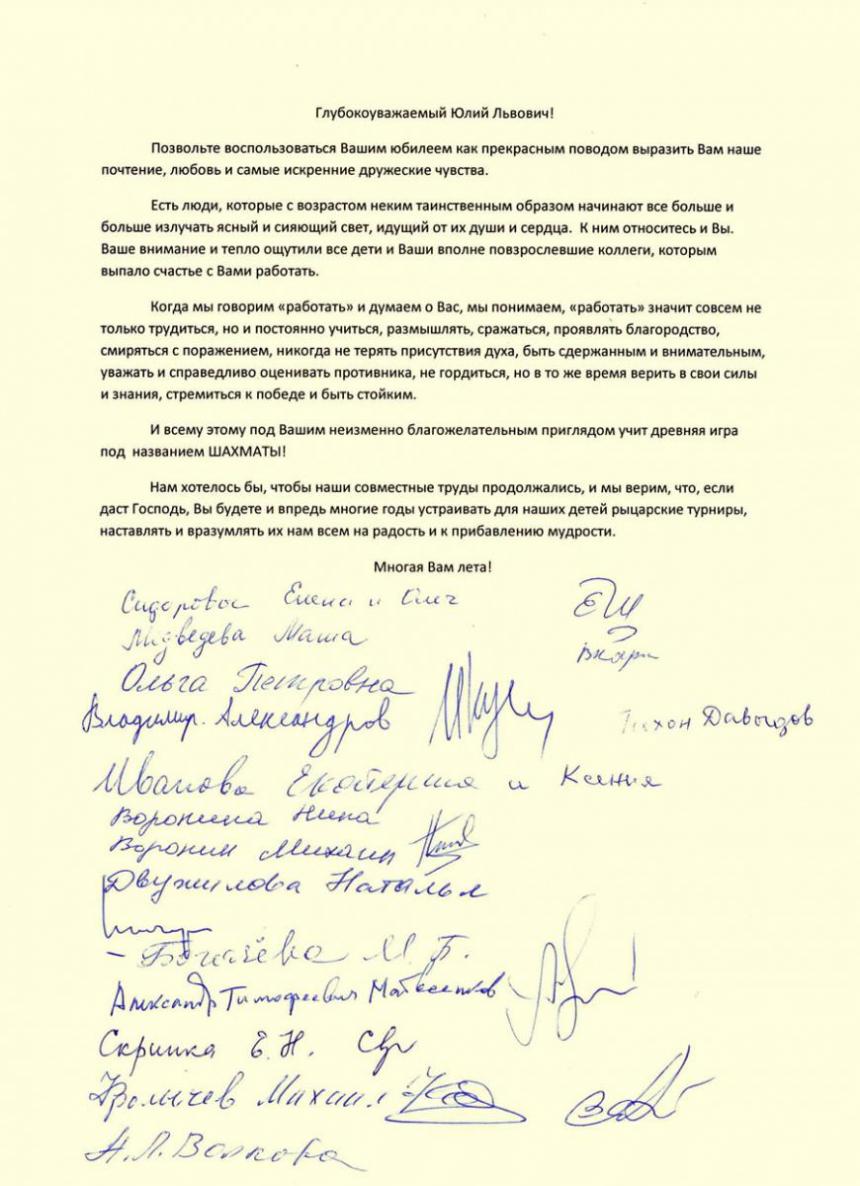 Глубокоуважаемый Юлий Львович!
Позвольте воспользоваться Вашим юбилеем как прекрасным поводом выразить Вам наше
почтение, любовь и самые искренние дружеские чувства.
Есть люди, которые с возрастом неким таинственным образом начинают все больше и
больше излучать ясный и сияющий свет, идущий от их души и сердца. К ним относитесь и Вы.
Ваше внимание и тепло ощутили все дети и Ваши вполне повзрослевшие коллеги, которым
выпало счастье с Вами работать.
Когда мы говорим «работать» и думаем о Вас, мы понимаем, «работать» значит совсем не
только трудиться, но и постоянно учиться, размышлять, сражаться, проявлять благородство,
смиряться с поражением, никогда не терять присутствия духа, быть сдержанным и внимательным,
уважать и справедливо оценивать противника, не гордиться, но в то же время верить в свои силы
и знания, стремиться к победе и быть стойким.
И всему этому под Вашим неизменно благожелательным приглядом учит древняя игра
под названием ШАХМАТЫ!
Нам хотелось бы, чтобы наши совместные труды продолжались, и мы верим, что, если
даст Господь, Вы будете и впредь многие годы устраивать для наших детей рыцарские турниры,
наставлять и вразумлять их нам всем на радость и к прибавлению мудрости.
Многая Вам лета!
Сидоровы Елена и Олег
Медведева Маша
Ольга Петровна
Владимир Александров
Тихон Давыдов
Иванова Екатерина и Ксения
Воронина Нина
Воронин Михаил
Двужилова Наталья
Богачёва М. Б.
Александр Тимофеевич
Скрипка Е. Н.
Михаил
Н. Л. Волкова